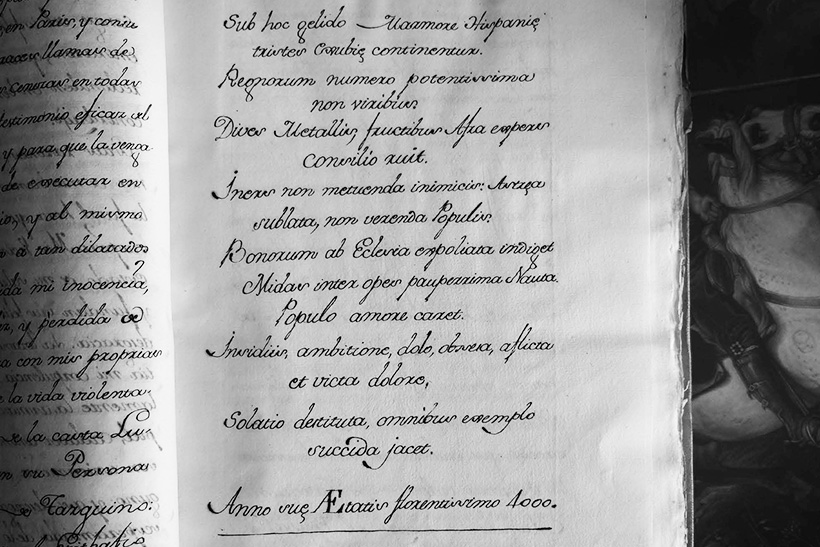 en Paris, y con su
llamas de
Cenizas en todas
testimonio eficaz al
y para que la venga
de executar en
y al mismo
a tan dilatados
mi inocencia,
y perdida
a con mis proprias
la vida violenta
la casta Lu-
su Persona
Tarquino:
Sub hoc gelido Marmore Hispanię
tristes Exubię continentur.
Regnorum numero potentissima
non viribus:
Dives Metallis, fructibus Afra expers
Consilio ruit.
Iners non metuenda inimicis: Astręa
sublata, non verenda Populis:
Bonorum ab Eclesia expoliata indiget
Midas inter opes pauperrima Nauta.
Populo amore caret.
Insidiis, ambitione, dolo, obsesa, aflicta
et victa dolore,
Solatio destituta, omnibus exemplo
succida jacet.
Anno suę Ætatis florentissimo 4000.